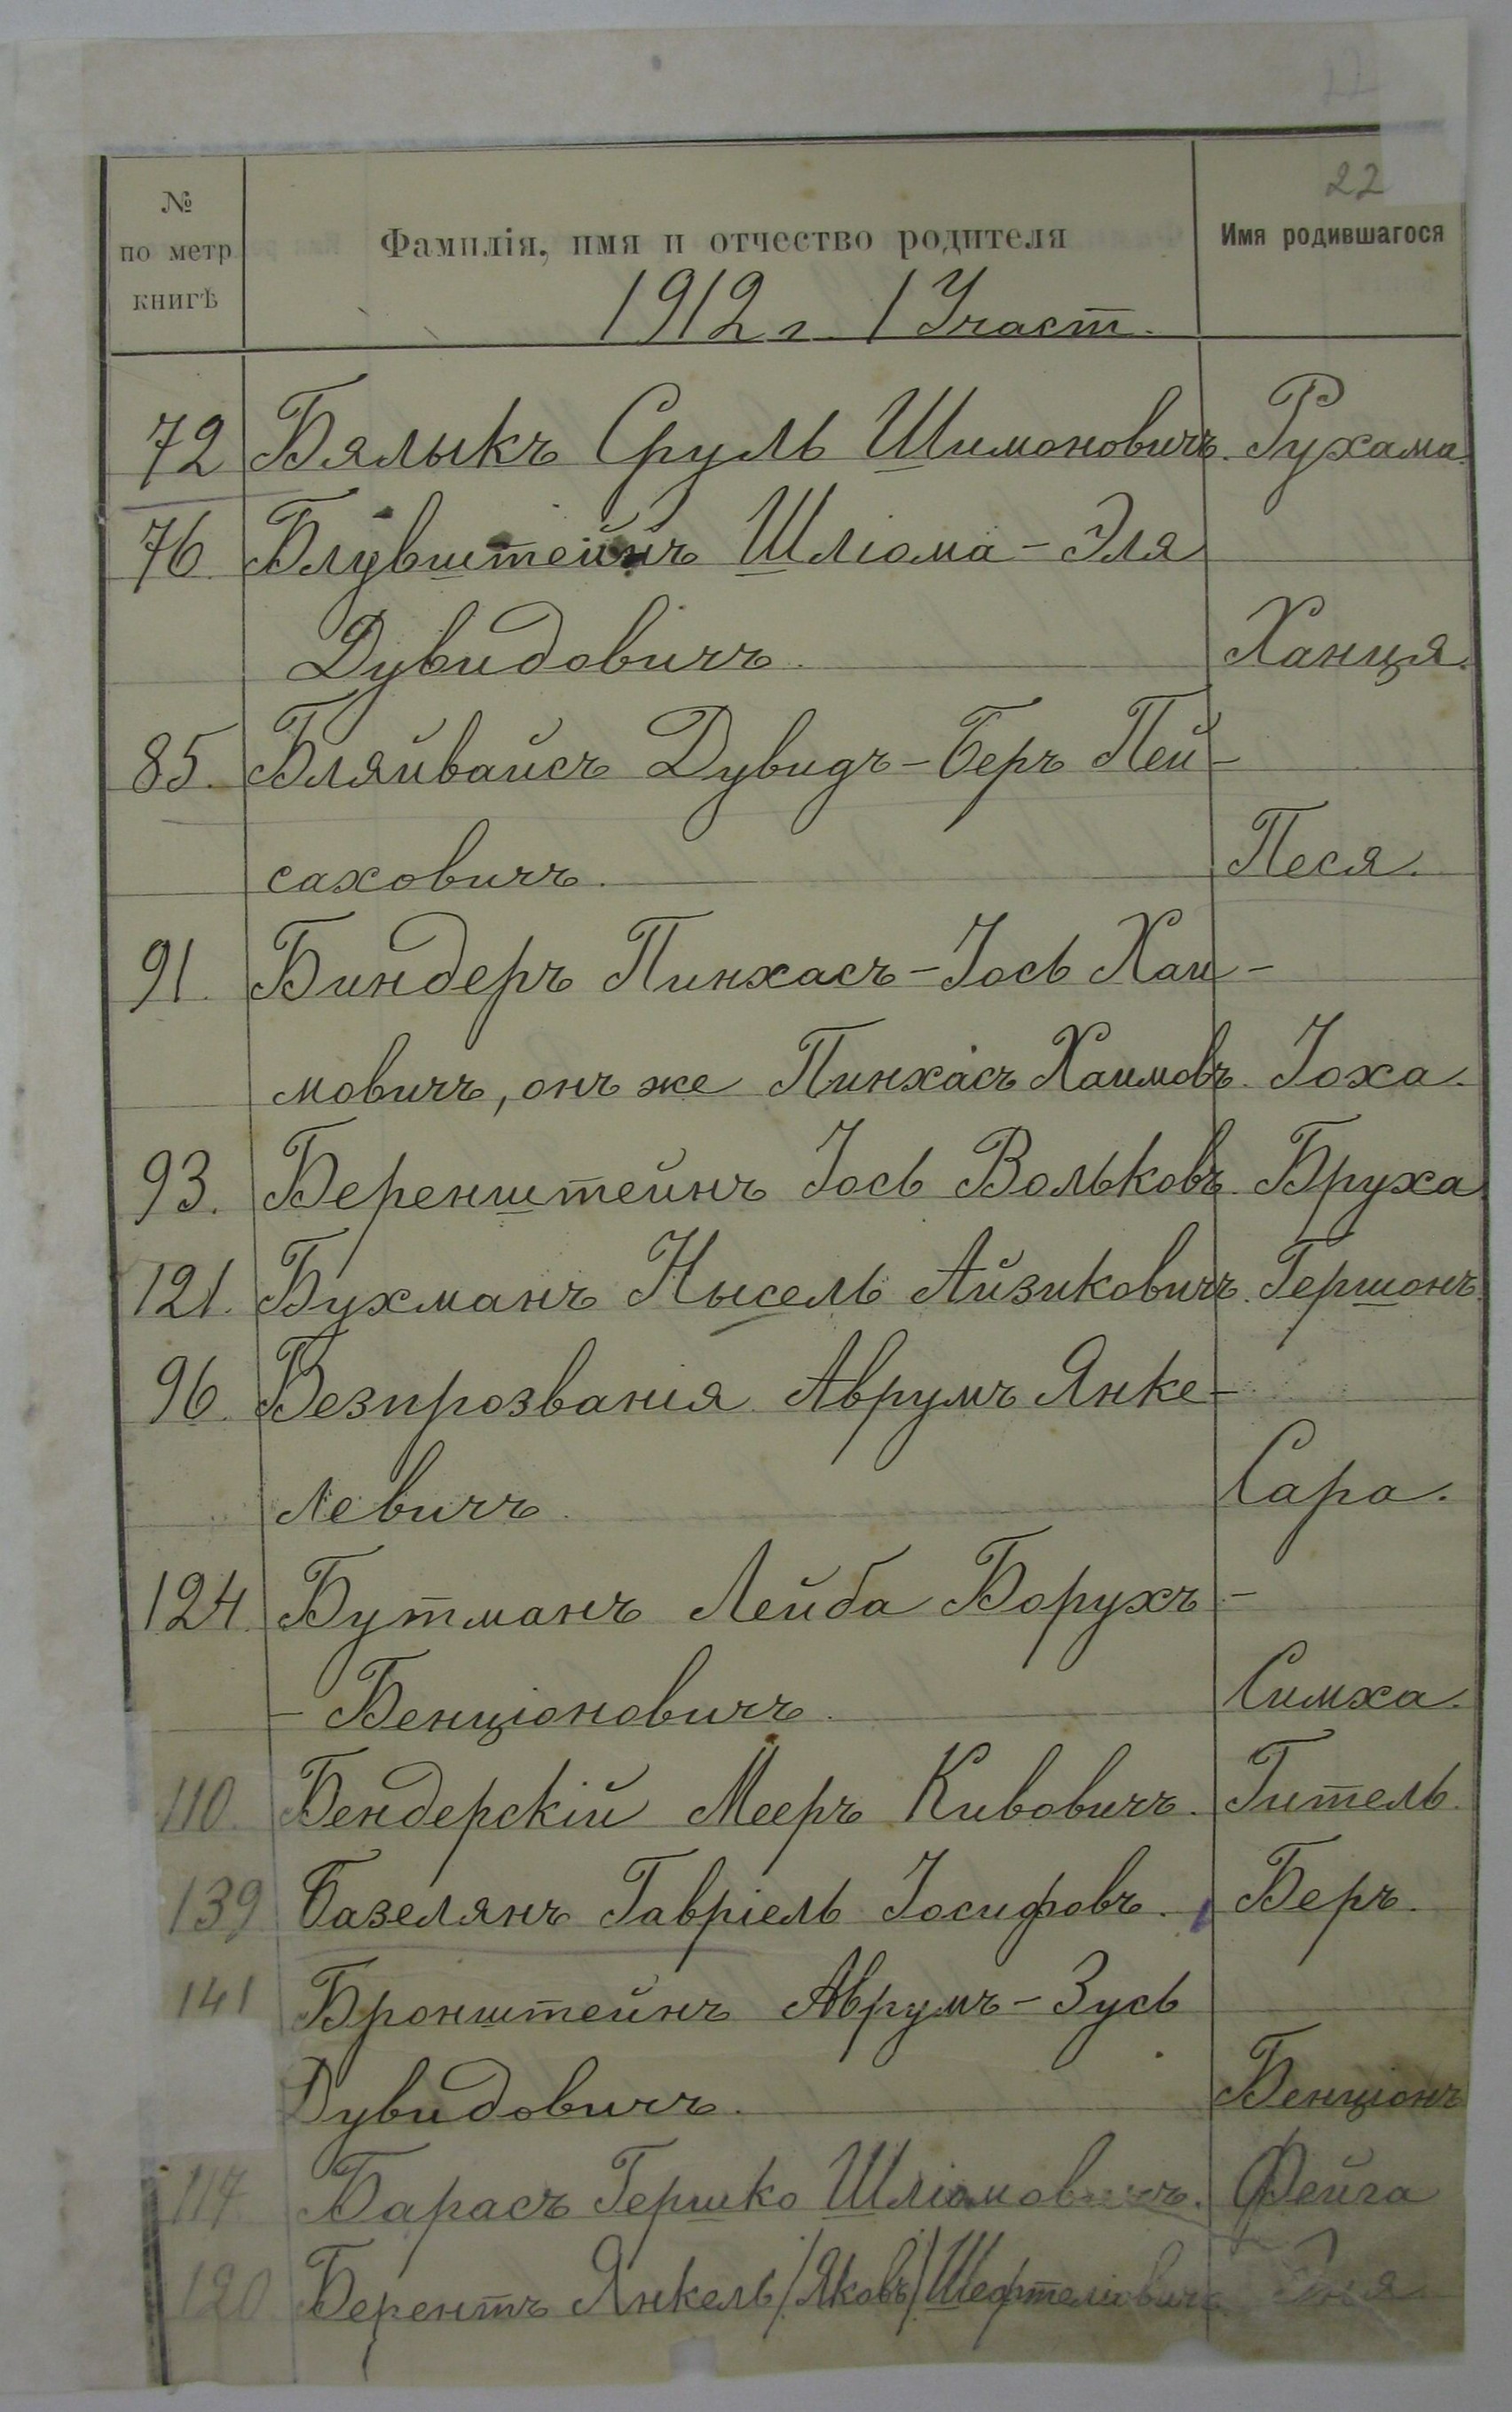 22
№ по метр книгѣ
Фамилія, имя и отчество родителя
Имя родившагося
1912 г. 1 Участ.
72 Бялыкъ Сруль Шимоновичъ. Рухама.
76. Блувштейнъ Шліома-Эля
Дувидовичъ. Ханця.
85. Бляйвайсъ Дувидъ-Беръ Пей-
саховичъ. Песя.
91. Биндеръ Пинхасъ-Іось Хаи-
мовичъ, онъ же Пинхасъ Хаимовъ. Іоха.
93. Беренштейнъ Іось Вольковъ. Бруха.
121. Бухманъ Нысель Айзиковичъ. Гершонъ.
96. Безпрозванія Аврумъ Янке-
левичъ. Сара.
124. Бутманъ Лейба Борухъ-
-Бенціоновичъ. Симха.
110. Бендерскій Мееръ Кивовичъ. Гитель.
139 Базелянъ Гавріель Іосифовъ. Беръ.
141 Бронштейнъ Аврумъ-Зусь
Дувидовичъ. Бенціонъ
117 Барасъ Гершко Шліомовичъ. Фейга
120 Берентъ Янкель /Яковъ/ Шефтеліовичъ